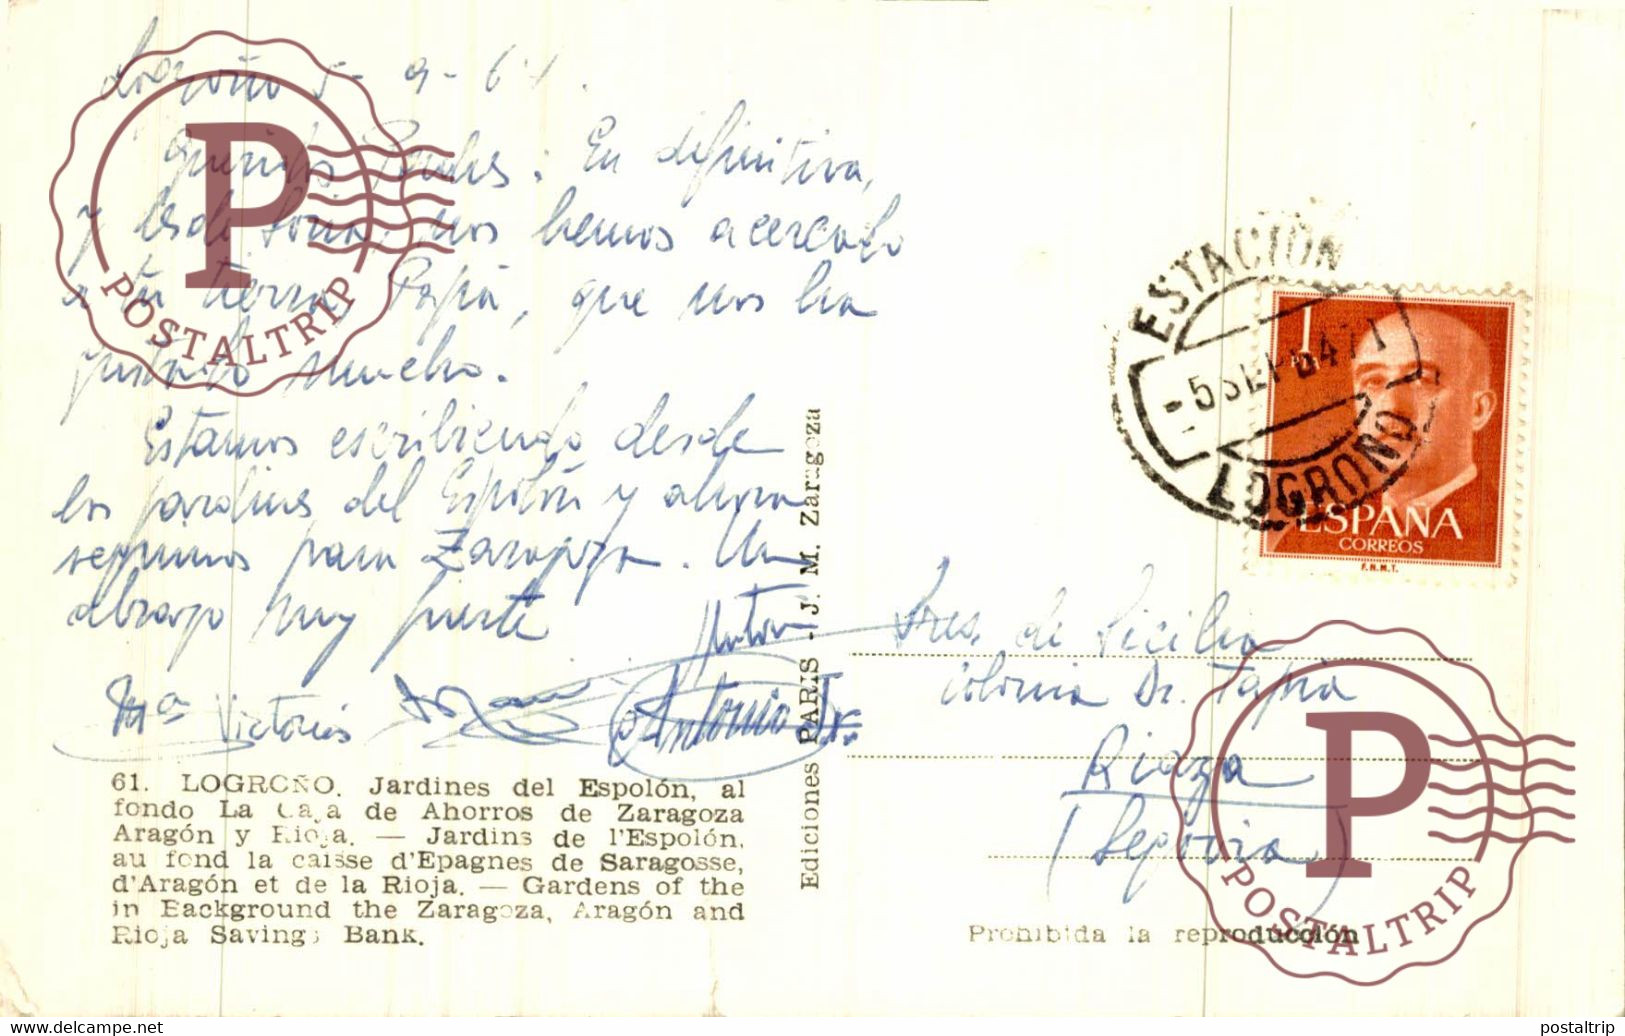 Logroño 5-9-64.
Queridos Padres: En definitiva,
y desde Soria, nos hemos acercado
a tu tierra Papá, que nos ha
gustado mucho.
Estamos escribiendo desde
los jardines del Espolón y ahora
seguimos para Zaragoza. Un
abrazo muy fuerte
Antonio
Mª Victoria
Antonio Jr.
61. LOGROÑO. Jardines del Espolón, al
fondo La Caja de Ahorros de Zaragoza
Aragón y Rioja. — Jardins de l'Espolón,
au fond la caisse d'Epagnes de Saragosse,
d'Aragón et de la Rioja. — Gardens of the
in Background the Zaragoza, Aragón and
Rioja Savings Bank.
Ediciones PARIS - J. M. Zaragoza
ESTACION
-5 SEP 64
LOGROÑO
1
ESPAÑA
CORREOS
F.N.M.T.
Sres. de Sicilia
Colonia Dr. Tapia
Riaza
(Segovia)
Prohibida la reproducción
P
POSTALTRIP
P
POSTALTRIP
www.delcampe.net
postaltrip